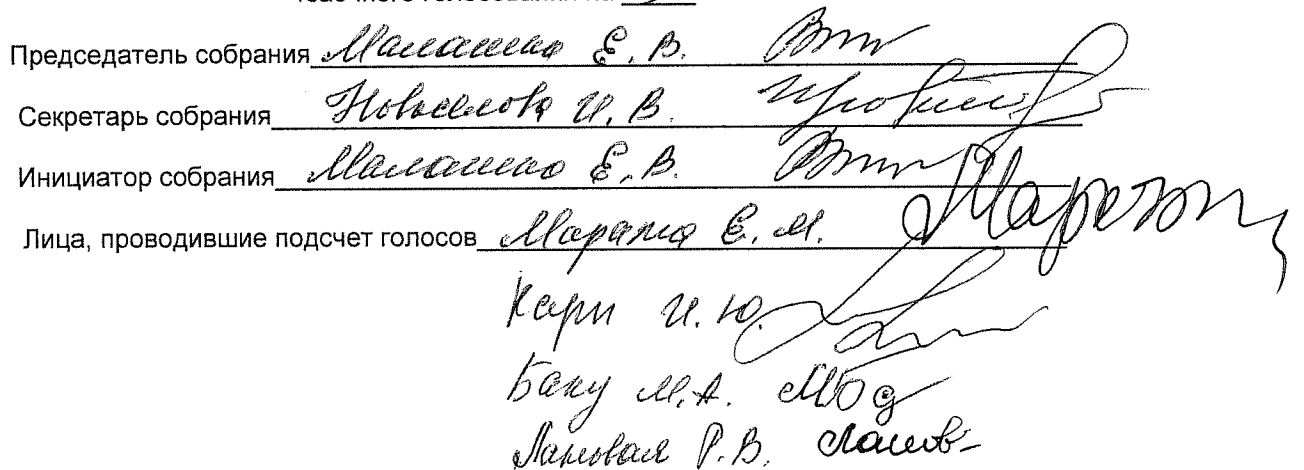 Председатель собрания Малашко Е. В.
Секретарь собрания Новоселова И. В.
Инициатор собрания Малашко Е. В.
Лица, проводившие подсчет голосов Е. М.
Карп И. Ю.
Баку М. А.
Лановая Р. В.